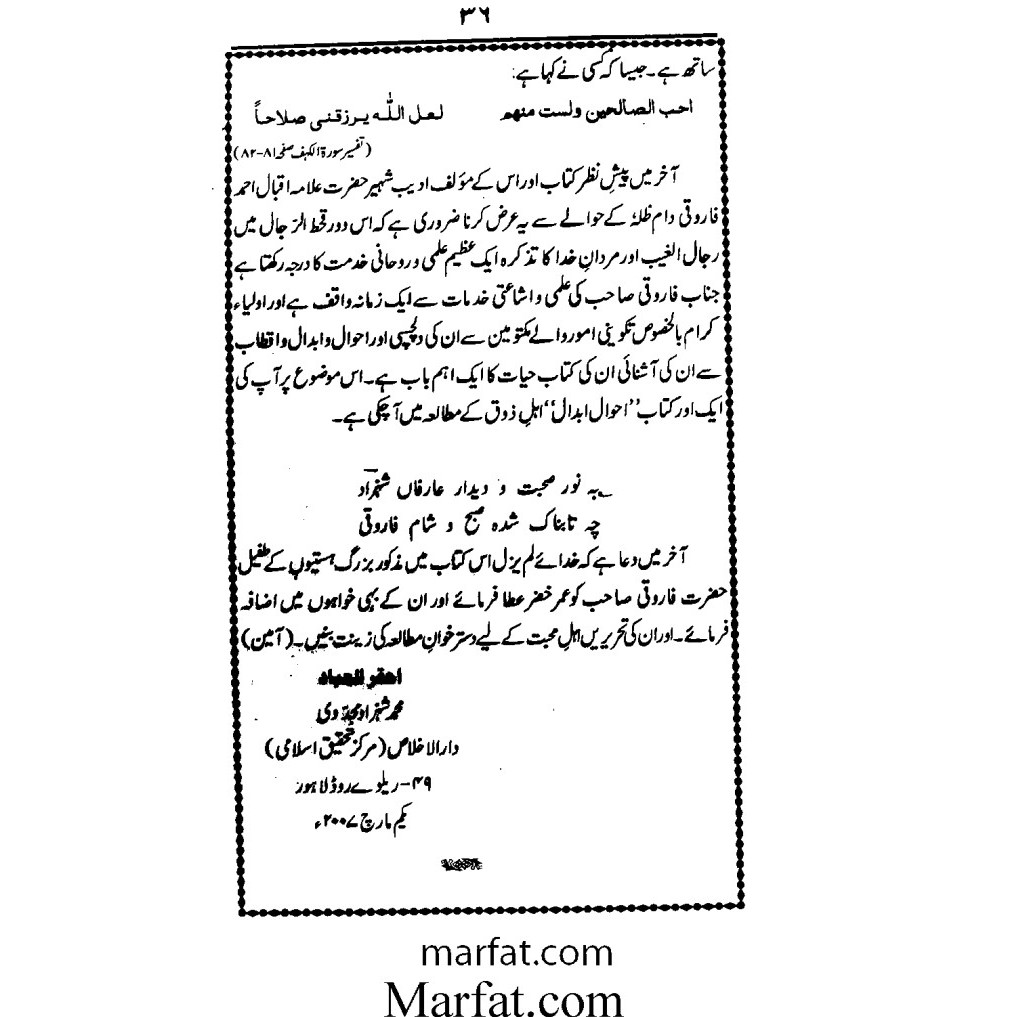 ۳۶
ساتھ ہے۔ جیسا کہ کسی نے کہا ہے:
احب الصالحین ولست منھم لعل اللّٰہ یرزقنی صلاحاً
(تفسیر سورۃ الکہف صفحہ ۸۱-۸۲)
آخر میں پیشِ نظر کتاب اور اس کے مؤلف ادیب شہیر حضرت علامہ اقبال احمد
فاروقی دام ظلہٗ کے حوالے سے یہ عرض کرنا ضروری ہے کہ اس دور قحط الرّجال میں
رجال الغیب اور مردانِ خدا کا تذکرہ ایک عظیم علمی و روحانی خدمت کا درجہ رکھتا ہے
جناب فاروقی صاحب کی علمی و اشاعتی خدمات سے ایک زمانہ واقف ہے اور اولیاء
کرام بالخصوص تکوینی امور والے مکتومین سے ان کی دلچسپی اور احوال و ابدال و اقطاب
سے ان کی آشنائی ان کی کتاب حیات کا ایک اہم باب ہے۔ اس موضوع پر آپ کی
ایک اور کتاب ’’احوال ابدال‘‘ اہلِ ذوق کے مطالعہ میں آ چکی ہے۔
بہ نور صحبت و دیدار عارفاں شہزاد
چہ تابناک شدہ صبح و شام فاروقی
آخر میں دعا ہے کہ خدائے لم یزل اس کتاب میں مذکور بزرگ ہستیوں کے طفیل
حضرت فاروقی صاحب کو عمر خضر عطا فرمائے اور ان کے بہی خواہوں میں اضافہ
فرمائے۔ اور ان کی تحریریں اہلِ محبت کے لیے دسترخوانِ مطالعہ کی زینت بنیں۔ (آمین)
احقر العباد
محمد شہزاد مجددی
دارالاخلاص (مرکز تحقیق اسلامی)
۴۹- ریلوے روڈ لاہور
یکم مارچ ۲۰۰۷ء
marfat.com
Marfat.com